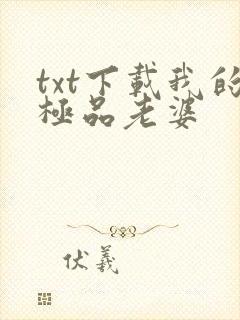 txt下載我的
極品老婆
伏羲